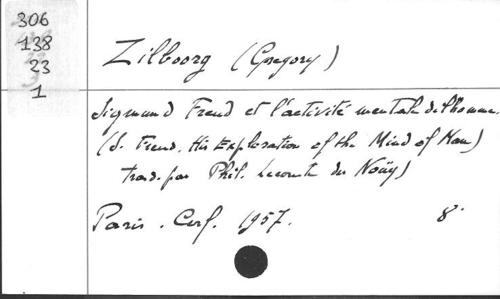 306
138
23
1
Zilboorg (Gregory)
Sigmund Freud et l'activité mentale de l'homme.
(S. Freud. His Exploration of the Mind of Man)
trad. par Phil. Lecomte du Noüy)
Paris. Cerf. 1957. 8°